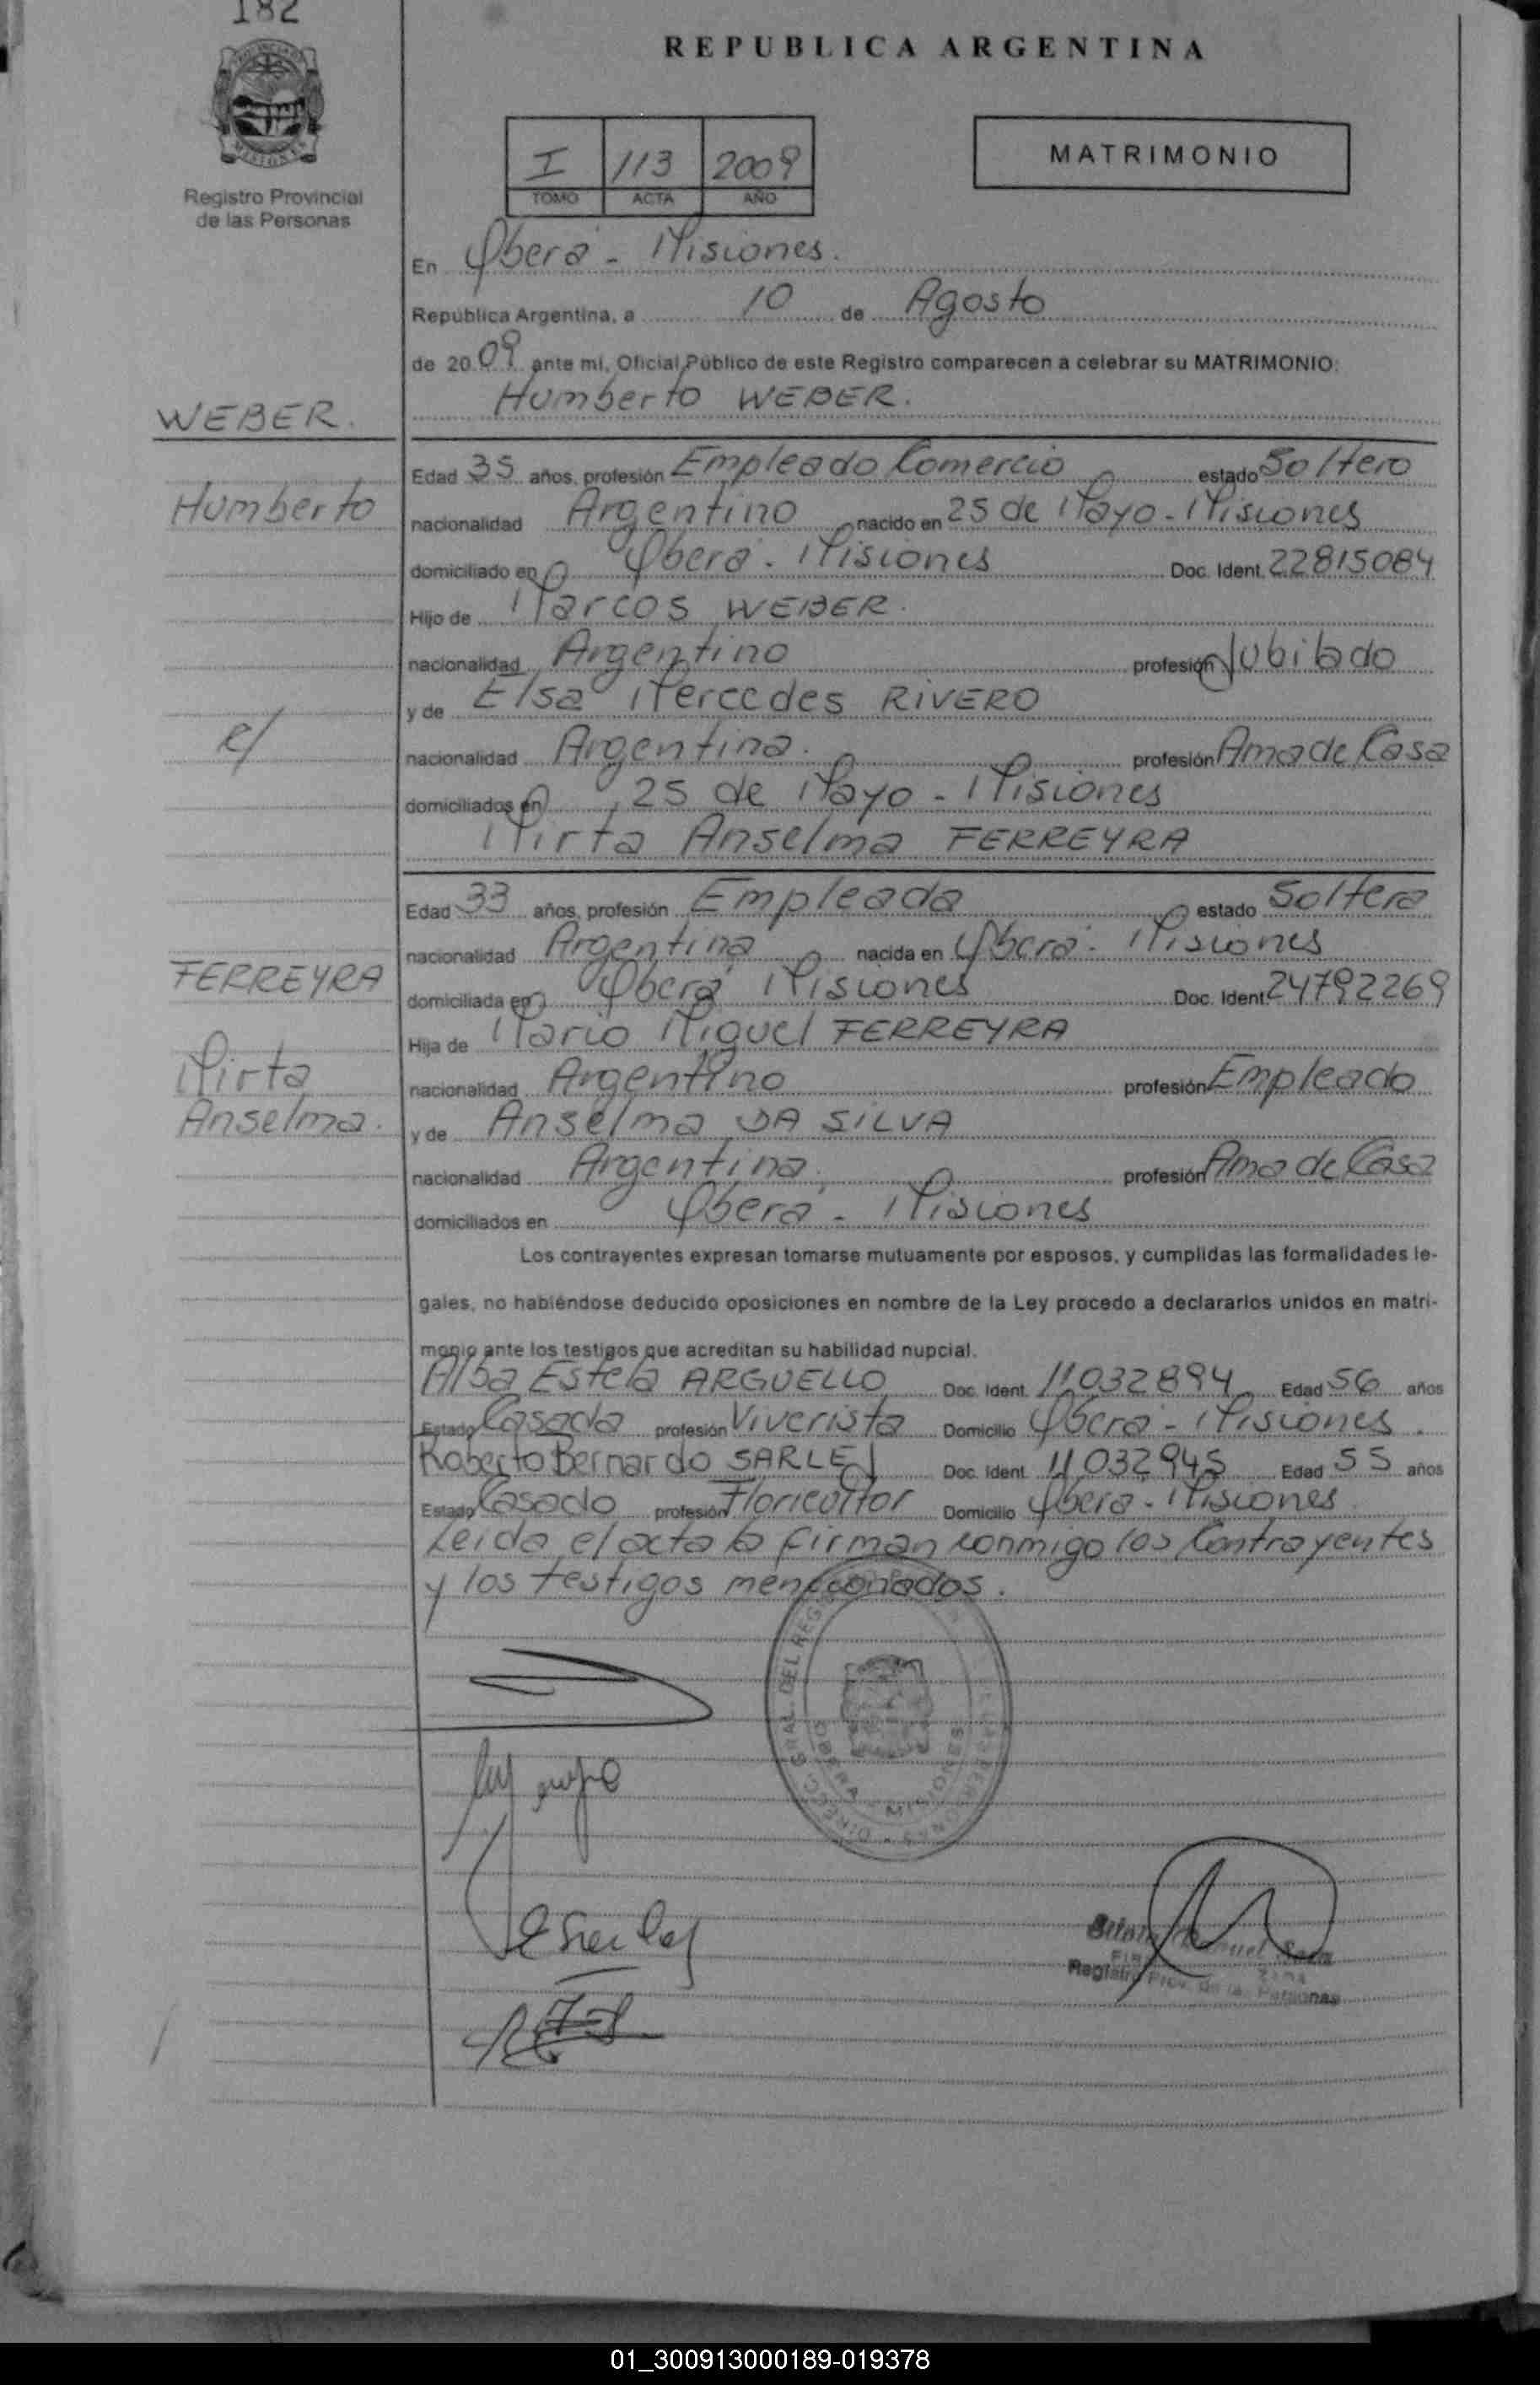 182
MISIONES
Registro Provincial
de las Personas
REPUBLICA ARGENTINA
I 113 2009
TOMO ACTA AÑO
MATRIMONIO
En Oberá - Misiones.
República Argentina, a 10 de Agosto
de 2009 ante mí, Oficial Público de este Registro comparecen a celebrar su MATRIMONIO:
Humberto WEBER.
WEBER.
Edad 35 años, profesión Empleado Comercio estado Soltero
Humberto
nacionalidad Argentino nacido en 25 de Mayo - Misiones
domiciliado en Oberá - Misiones Doc. Ident. 22815084
Hijo de Marcos WEBER.
nacionalidad Argentino profesión Jubilado
y de Elsa Mercedes RIVERO
c/
nacionalidad Argentina. profesión Ama de Casa
domiciliados en 25 de Mayo - Misiones
Mirta Anselma FERREYRA
Edad 33 años, profesión Empleada estado Soltera
nacionalidad Argentina nacida en Oberá - Misiones
FERREYRA
domiciliada en Oberá Misiones Doc. Ident. 24792269
Hija de Mario Miguel FERREYRA
Mirta
nacionalidad Argentino profesión Empleado
Anselma.
y de Anselma DA SILVA
nacionalidad Argentina. profesión Ama de Casa
domiciliados en Oberá - Misiones
Los contrayentes expresan tomarse mutuamente por esposos, y cumplidas las formalidades le-
gales, no habiéndose deducido oposiciones en nombre de la Ley procedo a declararlos unidos en matri-
monio ante los testigos que acreditan su habilidad nupcial.
Alba Estela ARGUELLO Doc. Ident. 11032894 Edad 56 años
Estado Casada profesión Viverista Domicilio Oberá - Misiones.
Roberto Bernardo SARLEJ Doc. Ident. 11032945 Edad 55 años
Estado Casado profesión Floricultor Domicilio Oberá - Misiones
Leida el acta la firman conmigo los Contrayentes
y los testigos mencionados.
DIRECC. GRAL. DEL REG. PERSONAS
OBERA - MISIONES
Registro Prov. de las Personas
01_300913000189-019378